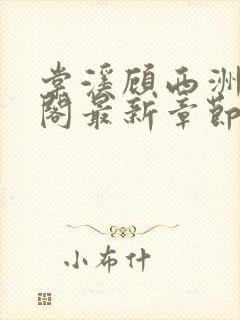 棠溪顾西洲
阁最新章节
小布什